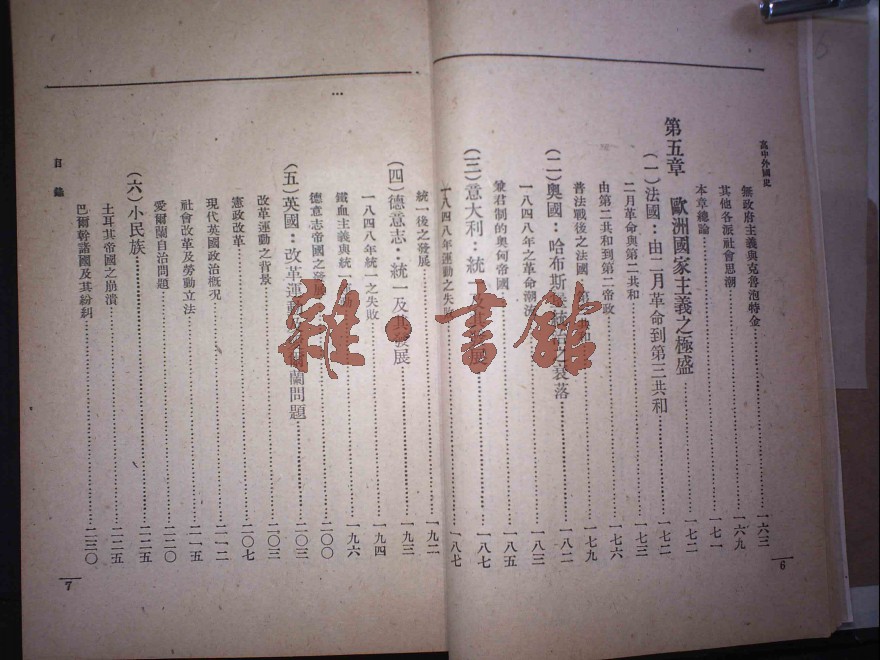 高中外國史
無政府主義與克魯泡特金……一六三
其他各派社會思潮……一六九
本章總論……一七一
第五章 歐洲國家主義之極盛……一七二
(一)法國：由二月革命到第三共和……一七二
二月革命與第二共和……一七三
由第二共和到第二帝政……一七六
普法戰後之法國……一七九
(二)奧國：哈布斯之衰落……一八二
一八四八年之革命潮流……一八三
兼君制的奧匈帝國……一八五
(三)意大利：統一及其發展……一八七
一八四八年運動之失……一八七
統一後之發展……一九二
(四)德意志：統一及其發展……一九三
一八四八年統一之失敗……一九四
鐵血主義與統一……一九六
德意志帝國之……二〇〇
(五)英國：改革運動及愛爾蘭問題……二〇三
改革運動之背景……二〇三
憲政改革……二〇七
現代英國政治概況……二一二
社會改革及勞動立法……二一五
愛爾蘭自治問題……二二〇
(六)小民族……二二五
土耳其帝國之崩潰……二二五
巴爾幹諸國及其紛糾……二三〇
目錄
6
7
雜·書館